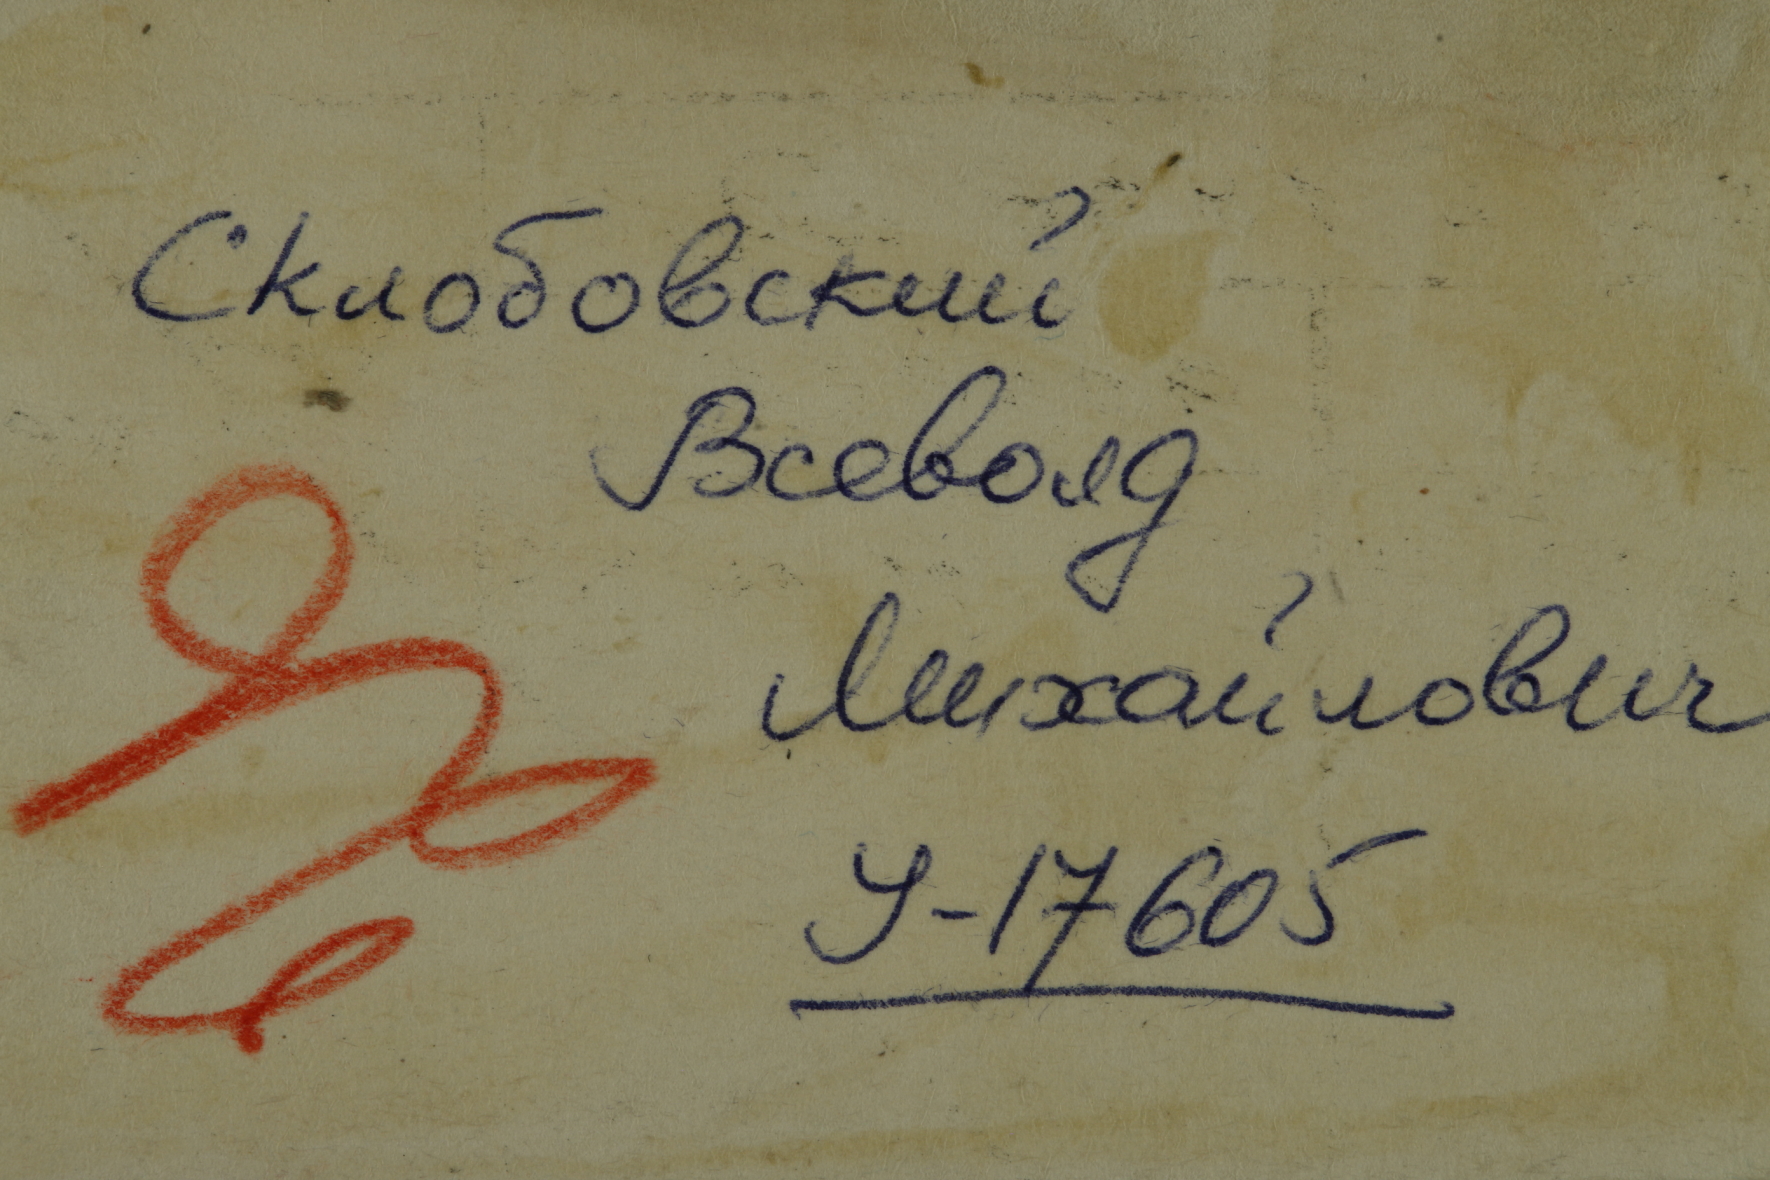 Склобовский
Всеволд
Михайлович
У-17605